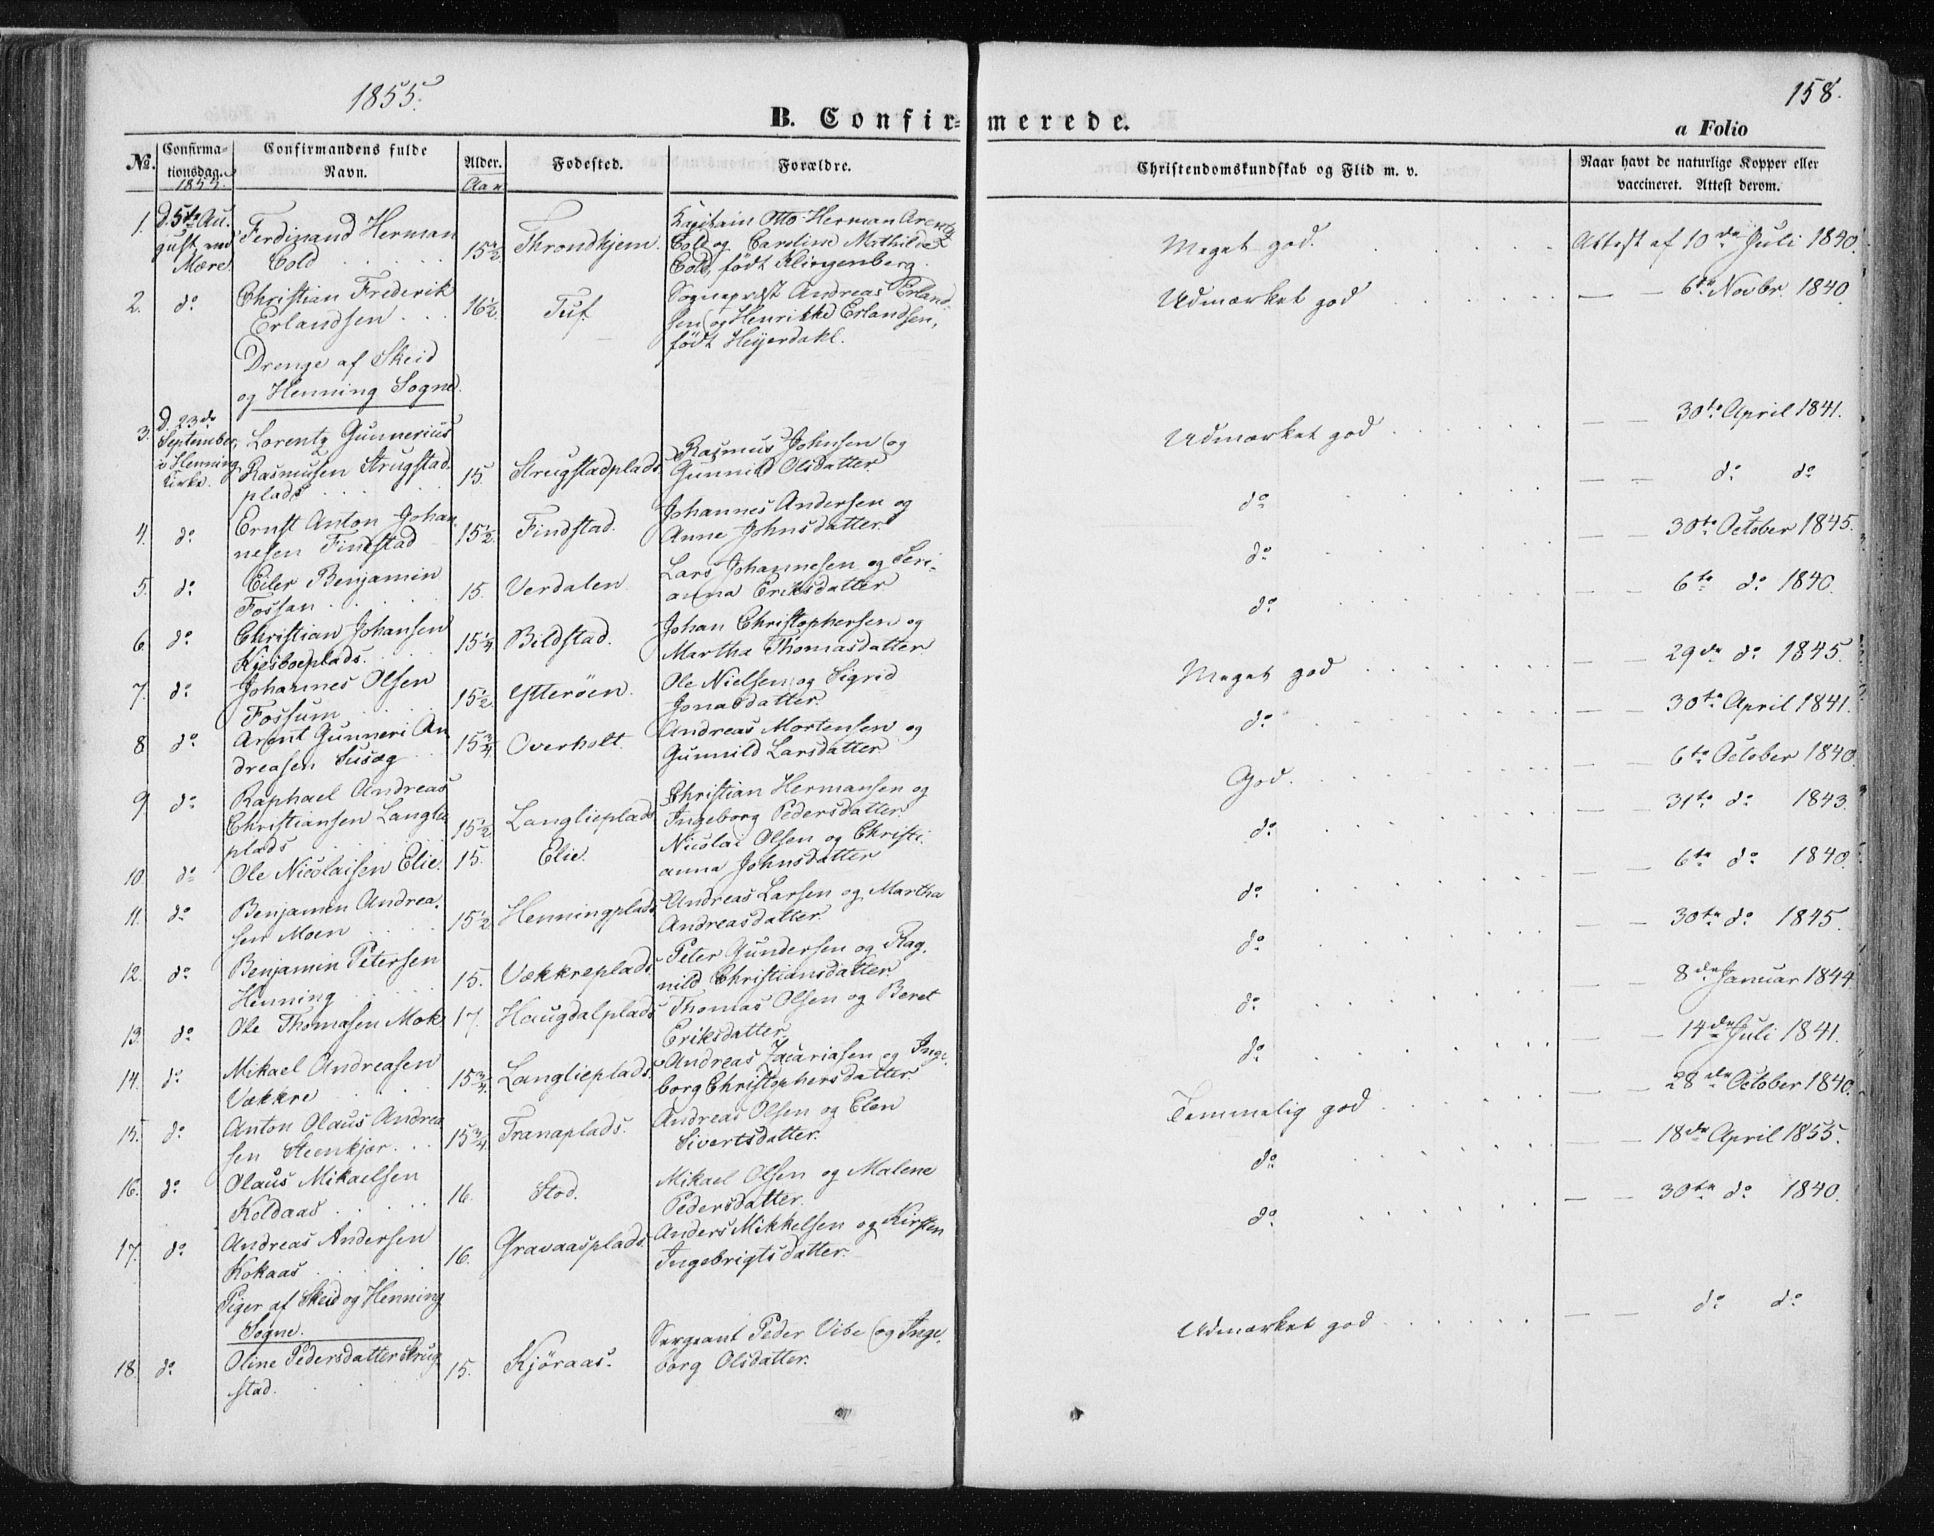 1855.
158.
B. Confir=
merede.
a Folio
No.
Confirma-
tionsdag.
1855.
Confirmandens fulde
Navn.
Alder.
Aar
Fodested.
Forældre.
Christendomskundskab og Flid m. v.
Naar havt de naturlige Kopper eller
vaccineret. Attest derom.
1.
D. 5te Au-
gust ved
Mære.
Ferdinand Herman
Cold
15 1/2
Throndhjem.
Kapitain Otto Herman Arentz
Cold og Caroline Mathilde
Cold, født Klingenberg.
Meget god.
Attest af 10de Juli 1840.
2.
do
Christian Frederik
Erlandsen
16 1/2
Tuf.
Sogneprest Andreas Erland-
sen og Henrikke Erlandsen,
født Heyerdahl.
Udmærket god
— — 6te Novbr. 1840.
Drenge af Skeid
og Henning Sogne.
3.
D. 23de
September
i Henning
Kirke.
Lorentz Gunnerius
Rasmusen Strugstad
plads
15.
Strugstadplads
Rasmus Johnsen og
Gunnild Olsdatter
Udmærket god
— — 30te April 1841.
4.
do
Ernst Anton Johan-
nesen Findstad
15 1/2
Findstad.
Johannes Andersen og
Anne Johnsdatter
do
— — do do
5.
do
Eiler Benjamin
Fossan
15.
Verdalen
Lars Johannesen og Seri-
anna Eriksdatter
do
— — 30te October 1845.
6.
do
Christian Johansen
Kjesboeplads.
15 1/4
Bildstad.
Johan Christophersen og
Martha Thomasdatter
do
— — 6te do 1840.
7.
do
Johannes Olsen
Fossum
15 1/2
Ytterøen.
Ole Nielsen og Sigrid
Jonasdatter
Meget god
— — 29de do 1845.
8
do
Arent Gunneri An
dreasen Susæg
15 3/4
Overholt.
Andreas Mortensen og
Gunnild Larsdatter
do
— — 30te April 1841.
9.
do
Raphael Andreas
Christiansen Langlie
plads
15 1/2
Langlieplads
Christian Hermansen og
Ingeborg Pedersdatter
God.
— — 6te October 1840.
10.
do
Ole Nicolaisen Elie.
15.
Elie.
Nicolai Olsen og Christi-
anna Johnsdatter
do
— — 31te do 1843.
11.
do
Benjamin Andrea-
sen Moen
15 1/2
Henningplads
Andreas Larsen og Martha
Andreasdatter
do
— — 6te do 1840.
12.
do
Benjamin Petersen
Henning
15.
Vækkreplads.
Peter Gundersen og Rag-
nild Christiansdatter
do
— — 30te do 1845.
13.
do
Ole Thomasen Mok
17.
Haugdalplads
Thomas Olsen og Beret
Eriksdatter
do
— — 8de Januar 1844
14.
do
Mikael Andreasen
Vækkre
15 3/4
Langlieplads.
Andreas Zacariasen og Inge-
borg Christophersdatter
do
— — 14de Juli 1841.
15.
do
Anton Olaus Andrea
sen Steenkjær
15 3/4
Tranaplads.
Andreas Olsen og Elen
Sivertsdatter.
Temmelig god
— — 28de October 1840.
16.
do
Olaus Mikaelsen
Koldaas
16.
Stod.
Mikael Olsen og Malene
Pedersdatter.
do
— — 18de April 1855.
17.
do
Andreas Andersen
Kokaas
16.
Gravaasplads.
Anders Mikkelsen og Kirsten
Ingebrigtsdatter.
do
— — 30te do 1840.
Piger af Skeid og Henning
Sogne.
18.
do
Oline Pedersdatter Strug
stad.
15.
Kjøraas.
Sergeant Peder Vibe og Inge-
borg Olsdatter.
Udmærket god
— — do do